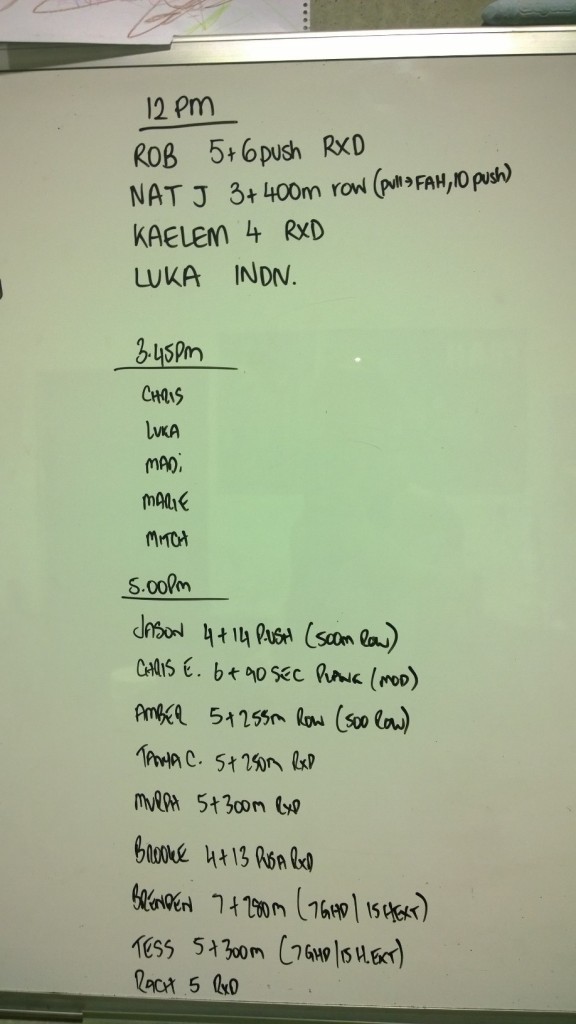 12 PM
ROB 5+6 push RXD
NAT J 3+400m row (pull→FAH, 10 push)
KAELEM 4 RXD
LUKA INDN.
3.45PM
CHRIS
LUKA
MADi
MARIE
MITCH
5.00PM
JASON 4+14 PUSH (500m Row)
CHRIS E. 6+90 SEC PLANK (MOD)
AMBER 5+255m Row (500 Row)
C. 5+250m RxD
5+300m RxD
BROOKE 4+13 PUSH RxD
BRENDEN 7+280m (7GHD/15 H.EXT)
TESS 5+300m (7GHD/15 H.EXT)
RACH 5 RxD